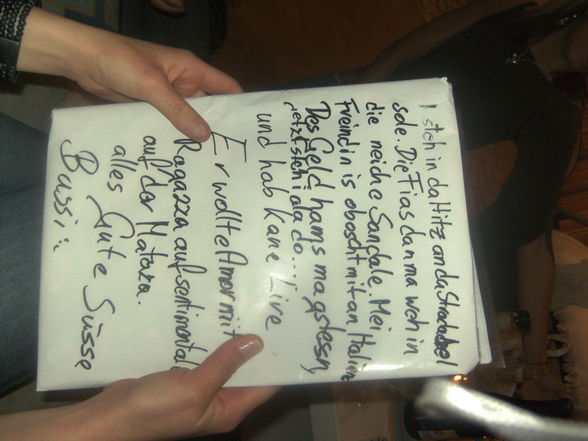 I steh in da Hitz an da Strandl
sole. Die Fias dan ma weh in
die neiche Sandale. Mei
Freindin is oboscht mit an Italien
Des Geld hams ma gstessn,
jetzt steh i da do... Live
und hab kane Live
Er wollte Amor mit
Ragazza auf sentimental
auf der Matara.
alles Gute Süsse
Bussi!!